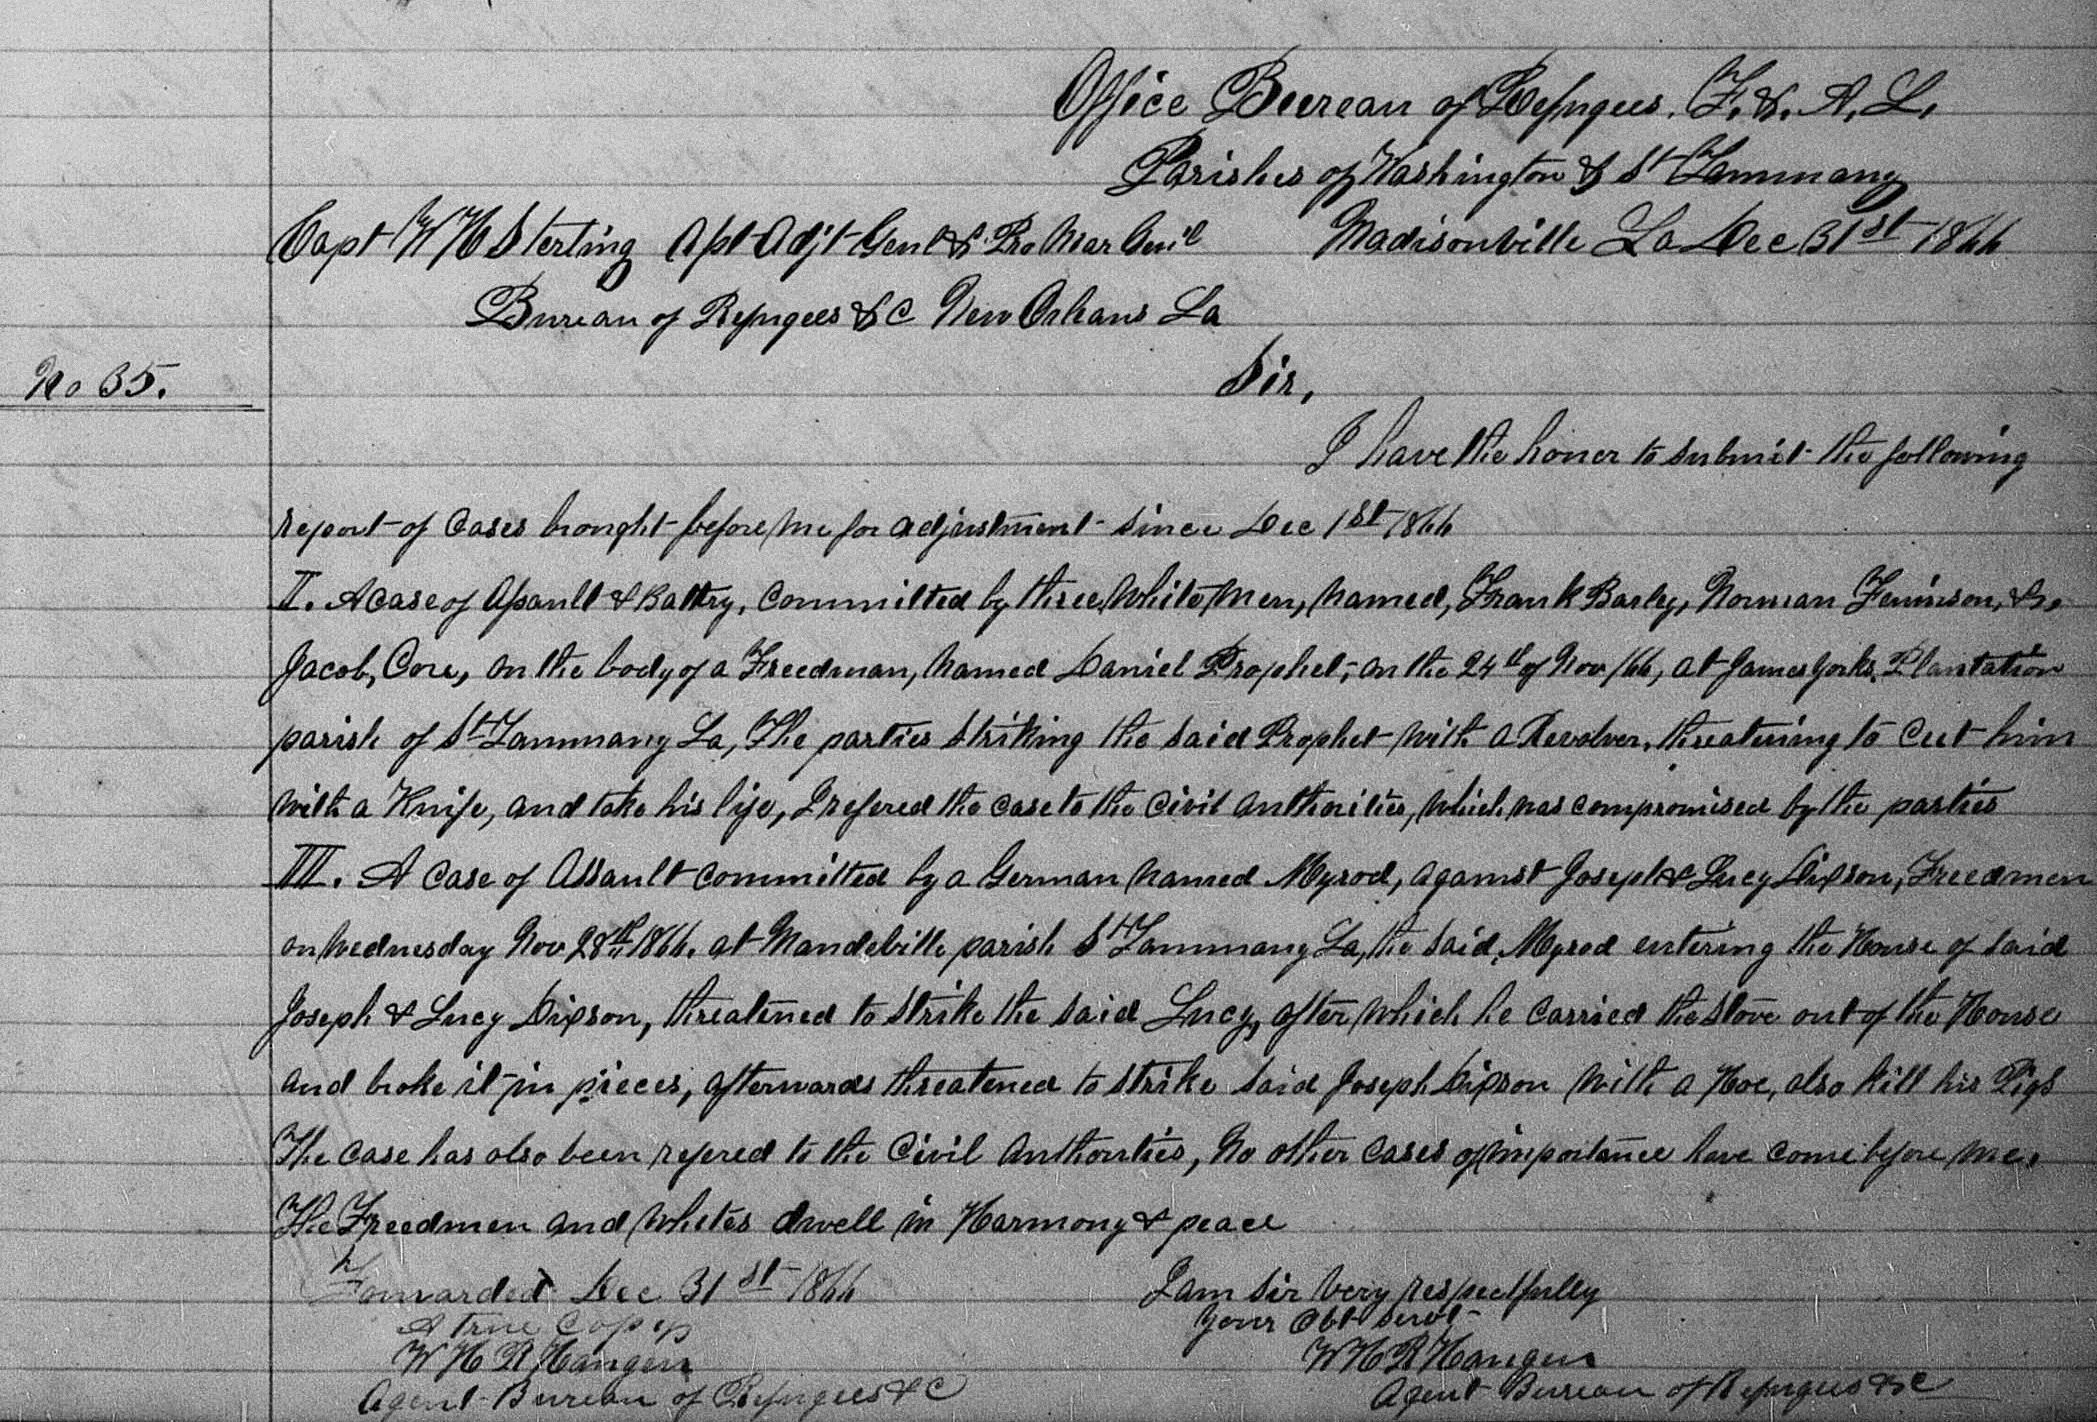 Office Bureau of Refugees. F. & A. L.
Parishes of Washington & St Tammany
Capt W H Sterling Asst Adjt Genl & Pro Mar Genl Madisonville La Dec 31st 1866
Bureau of Refugees &C New Orleans La
No 35.
Sir,
I have the honor to submit the following
report of Cases brought before me for adjustment since Dec 1st 1866
II. A case of Assault & Battry, Committed by three White Men, named, Frank Barley, Norman Fennison, &
Jacob, Core, on the body of a Freedman, named Daniel Prophet, on the 24th of Nov /66, at James Yorks, Plantation
parish of St Tammany La, The parties Striking the said Prophet with a Revolver, threatening to Cut him
with a Knife, and take his life, I refered the case to the Civil Authorities, which was compromised by the parties
III. A Case of Assault committed by a German named Myrod, against Joseph & Lucy Dixson, Freedmen
on Wednesday Nov 28th 1866. at Mandeville parish St Tammany La, the said, Myrod entering the House of said
Joseph & Lucy Dixson, threatened to strike the said Lucy, after which he carried the stove out of the House
and broke it in pieces, afterwards threatened to strike said Joseph Dixson with a Hoe, also kill his Pigs
The case has also been refered to the Civil Authorities, No other cases of importance have come before me.
The Freedmen and Whites dwell in Harmony & peace
Forwarded Dec 31st 1866 I am Sir Very respectfully
A True Copy Your Obt Servt
W H R Hangen W H R Hangen
Agent Bureau of Refugees &C Agent Bureau of Refugees &C